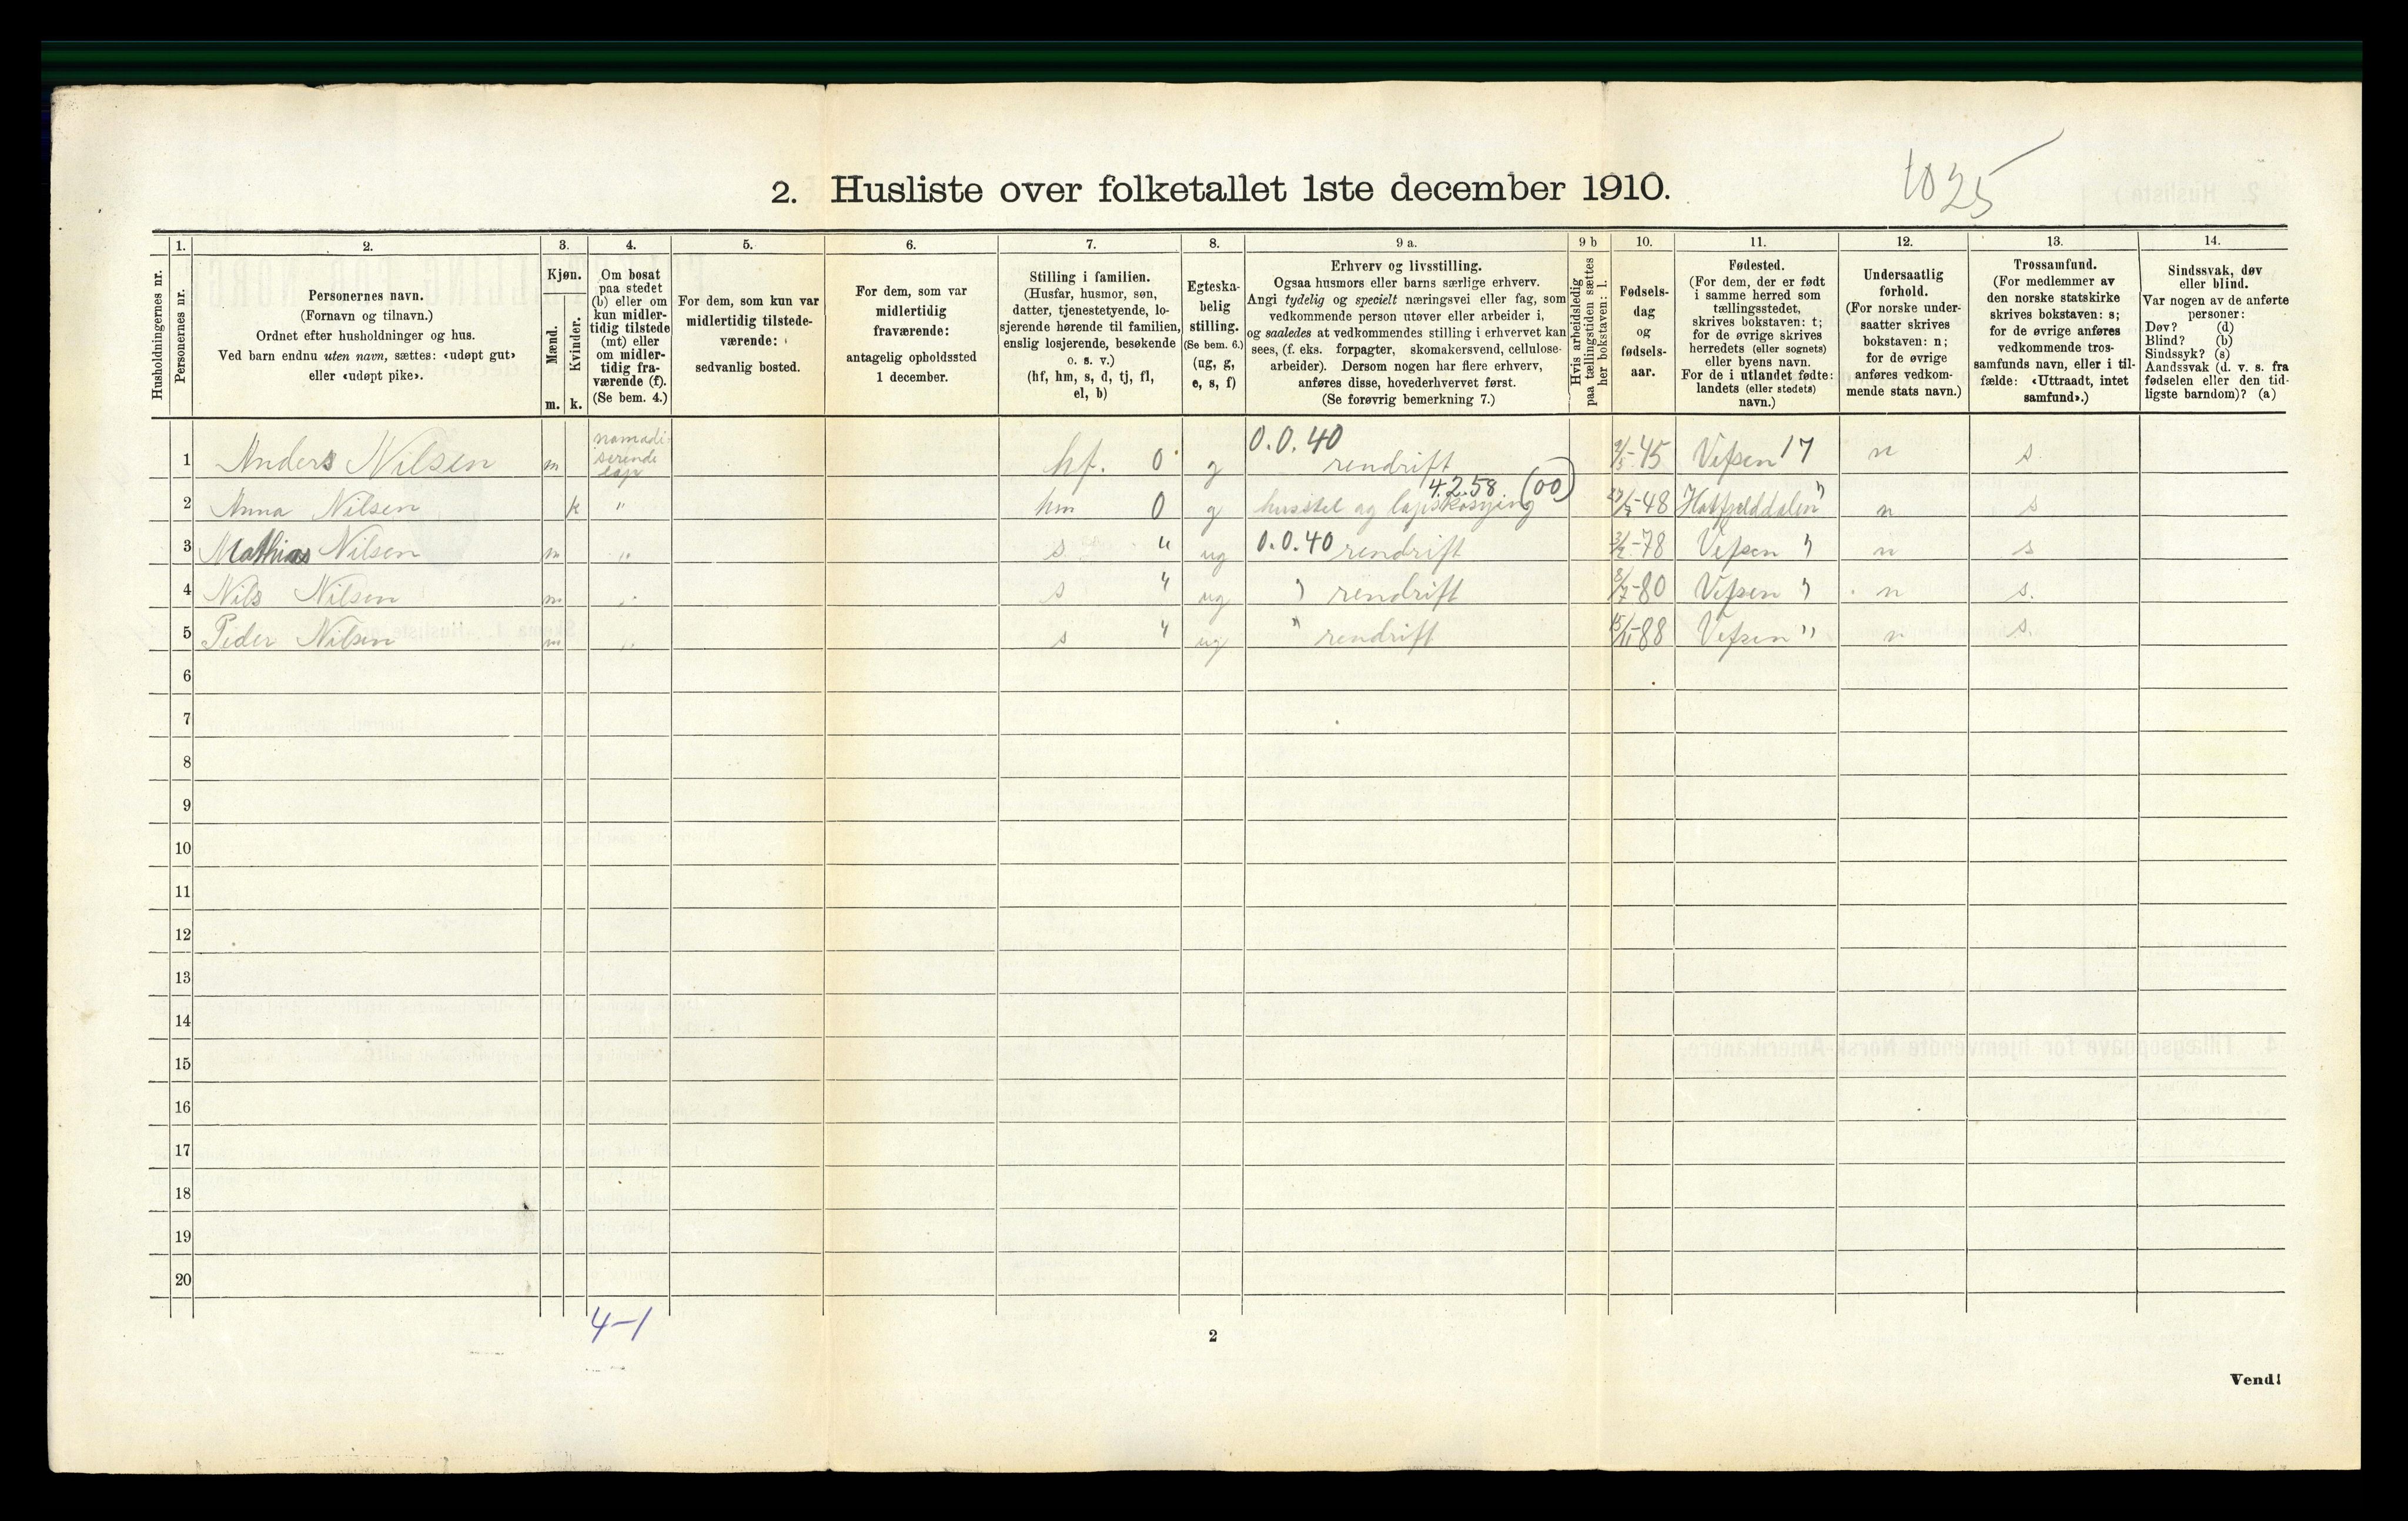 2. Husliste over folketallet 1ste december 1910.
1025
Husholdningernes nr.
1.
Personernes nr.
2.
Personernes navn.
(Fornavn og tilnavn.)
Ordnet efter husholdninger og hus.
Ved barn endnu uten navn, sættes: «udøpt gut»
eller «udøpt pike».
3.
Kjøn.
Mænd.
Kvinder.
m. k.
4.
Om bosat
paa stedet
(b) eller om
kun midler-
tidig tilstede
(mt) eller
om midler-
tidig fra-
værende (f).
(Se bem. 4.)
5.
For dem, som kun var
midlertidig tilstede-
værende:
sedvanlig bosted.
6.
For dem, som var
midlertidig
fraværende:
antagelig opholdssted
1 december.
7.
Stilling i familien.
(Husfar, husmor, søn,
datter, tjenestetyende, lo-
sjerende hørende til familien,
enslig losjerende, besøkende
o. s. v.)
(hf, hm, s, d, tj, fl,
el, b)
8.
Egteska-
belig
stilling.
(Se bem. 6.)
(ug, g,
e, s, f)
9 a.
Erhverv og livsstilling.
Ogsaa husmors eller barns særlige erhverv.
Angi tydelig og specielt næringsvei eller fag, som
vedkommende person utøver eller arbeider i,
og saaledes at vedkommendes stilling i erhvervet kan
sees, (f. eks. forpagter, skomakersvend, cellulose-
arbeider). Dersom nogen har flere erhverv,
anføres disse, hovederhvervet først.
(Se forøvrig bemerkning 7.)
9 b
Hvis arbeidsledig
paa tællingstiden sættes
her bokstaven: l.
10.
Fødsels-
dag
og
fødsels-
aar.
11.
Fødested.
(For dem, der er født
i samme herred som
tællingsstedet,
skrives bokstaven: t;
for de øvrige skrives
herredets (eller sognets)
eller byens navn.
For de i utlandet fødte:
landets (eller stedets)
navn.)
12.
Undersaatlig
forhold.
(For norske under-
saatter skrives
bokstaven: n;
for de øvrige
anføres vedkom-
mende stats navn.)
13.
Trossamfund.
(For medlemmer av
den norske statskirke
skrives bokstaven: s;
for de øvrige anføres
vedkommende tros-
samfunds navn, eller i til-
fælde: «Uttraadt, intet
samfund».)
14.
Sindssvak, døv
eller blind.
Var nogen av de anførte
personer:
Døv? (d)
Blind? (b)
Sindssyk? (s)
Aandssvak (d. v. s. fra
fødselen eller den tid-
ligste barndom)? (a)
1 Anders Nilsen m nomadi-serende lap hf. 0 g 0.0.40 rendrift 45 Vefsen 17 n s.
2 Anna Nilsen k " hm 0 g husstel og lapskosying 4.2.58 (00) 48 Hatfjelddalen " n s
3 Mathias Nilsen m " s " ug 0.0.40 rendrift 3/2-78 Vefsen " n s
4 Nils Nilsen m " s " ug " rendrift 8/7-80 Vefsen " n s.
5 Peder Nilsen m " s " ug " rendrift 15/11-88 Vefsen " n s.
6
7
8
9
10
11
12
13
14
15
16
17
18
19
20
4-1
2
Vend!